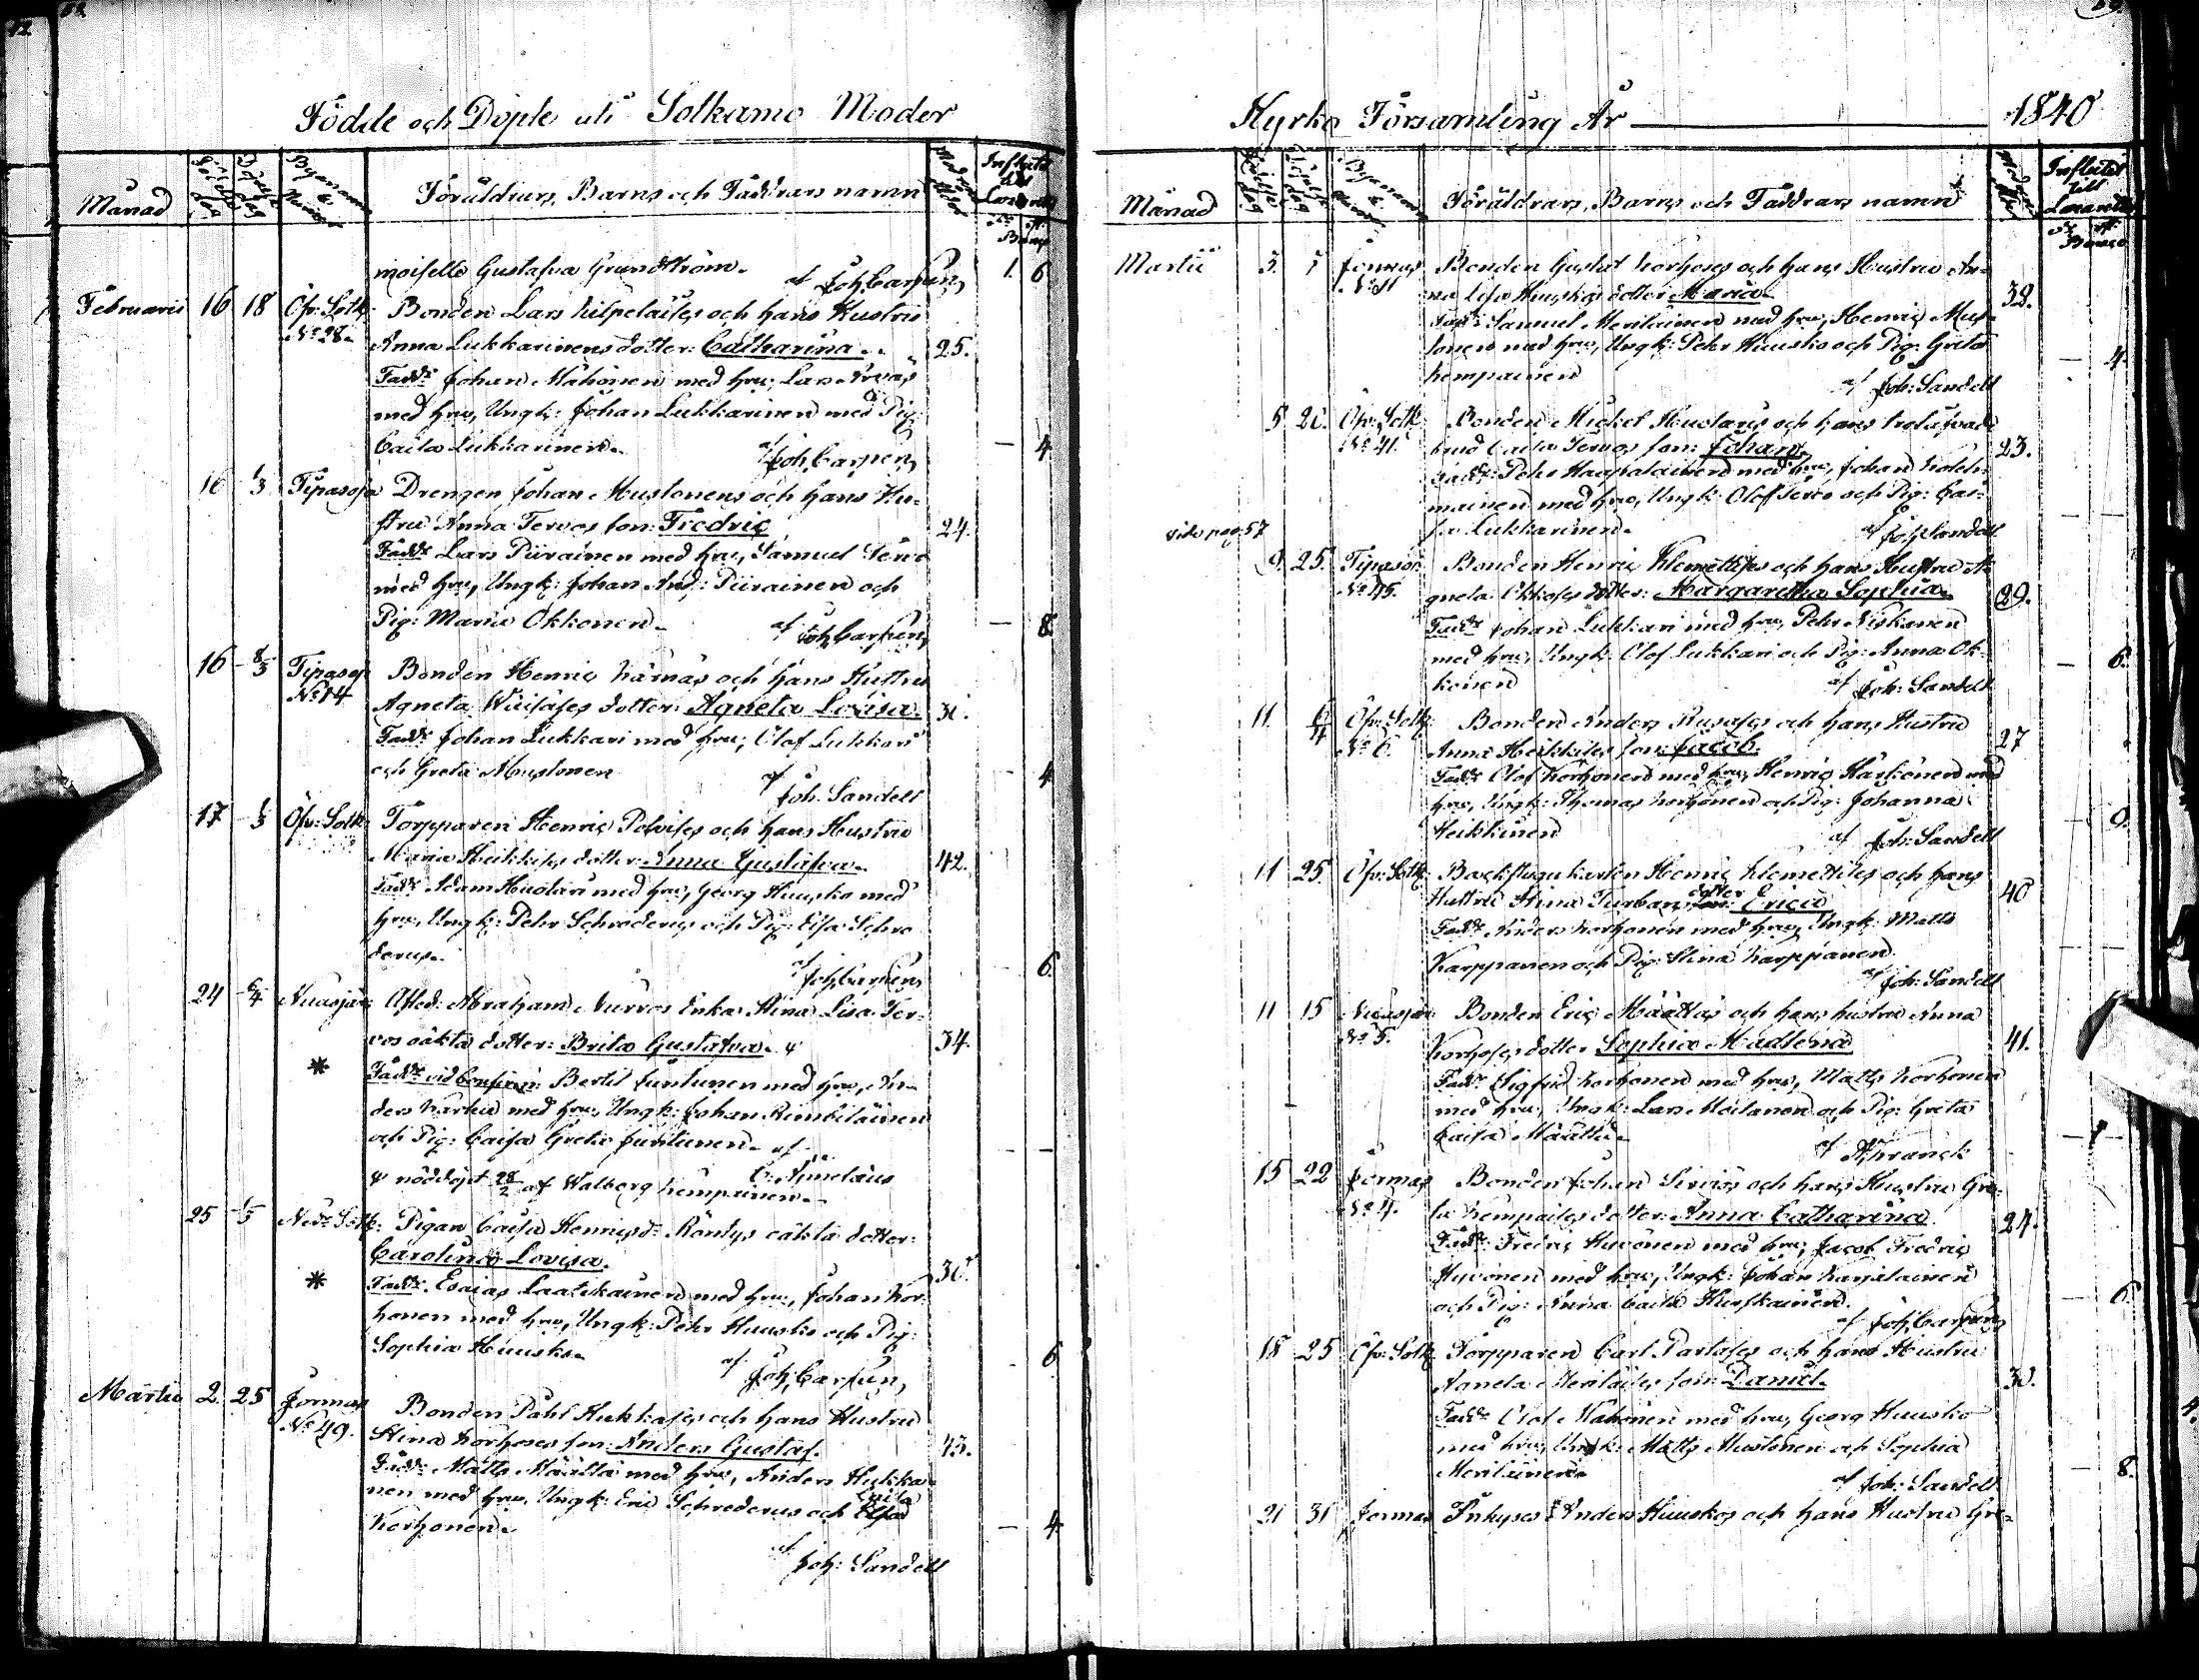 58.
Födde och Döpte uti Sotkamo Moder
Månad
Födelse dag
Döpelse dag
Bynamn & Numer
Föräldrars, Barns och Faddrars namn
Modrens ålder
Influtit till Lazarettet
Banco
moiselle Gustafva Grundström.
af Joh, Carpén, 1. 6
Februarii 16 18 Öfv: Sotk: Bonden Lars Kilpeläises och hans Hustru
N:o 28. Anna Lukkarinens dotter: Catharina. 25.
Fadd: Johan Mähönen med hru, Lars
med hru, Ungk: Johan Lukkarinen med Pig:
Caisa Lukkarinen. — 4.
af Joh, Carpén,
16 1/3 Tipasoja Drengen Johan Mustonens och hans Hu-
stru Anna Tervos son: Fredric 24.
Fadd: Lars Piirainen med hru, Samuel Tervo
med hru, Ungk: Johan And: Piirainen och
Pig: Maria Okkonen. — 8.
af Joh, Carpén,
16 8/3 Tipasoj Bonden Henric Kärnäs och hans Hustru
N:o 14 Agneta dotter: Agneta Lovisa. 31.
Fadd: Johan Lukkari med hru, Olof Lukkari
och Greta Mustonen — 4.
af Joh. Sandell
17 1/3 Öfv: Sotk: Torpparen Henric Polvises och hans Hustru
Maria Heikkises dotter: Anna Gustafva. 42.
Fadd: Adam Huotari med hru, Georg Huusko med
hru, Ungk: Pehr Schroderus och Pig: Elsa Schro
derus. — 6.
af Joh, Carpén,
24 6/4 Nuasjärv: Afled: Abraham Nurros Enka Stina Lisa Ter-
vos oäkta dotter: Brita Gustafva. 34.
* Fadd: vid Confirm: Bertil Juntunen med hru, An-
ders Karhu med hru, Ungk: Johan Rimbiläinen
och Pig: Caisa Greta Juntunen. af — —
C: Aimelæus
nöddöpt 28/2 af Walborg Kempainen.
25 1/3 Ned: Sotk: Pigan Caisa Henricsd: Röntys oäkta dotter:
Carolina Lovisa. 30.
* Fadd: Esaias Laatikainen med hru, Johan Kor-
honen med hru, Ungk: Pehr Huusko och Pig:
Sophia Huusko. — 6
af Joh, Carpén,
Martii 2. 25 Jormas Bonden Påhl Hukkases och hans Hustru
N:o 49. Stina Korhoses son: Anders Gustaf. 43.
Fadd: Matts Määttä med hru, Anders Hukka-
nen med hru, Ungk: Eric Schroderus och Elsa
Korhonen. — 4
af Joh: Sandell
59.
Kyrko Församling År 1840
Månad
Födelse dag
Döpelse dag
Bynamn & Numer
Föräldrars, Barns och Faddrars namn
Modrens ålder
Influtit till Lazarettet
Banco
Martii 3. 5 Jormas Bonden Gustaf Korhoses och hans Hustru An-
na Lisa Huuskos dotter: Maria. 32.
Fadd: Samuel Meriläinen med hru, Henric Mus-
tonen med hru, Ungk: Pehr Huusko och Pig: Greta
Kempainen — 4.
af Joh: Sandell
5 20. Öfv: Sotk: Bonden Mickel Huotaris och hans trolofvade
N:o 41. brud Caisa Tervos son: Johan. 23.
Fadd: Pehr Haapalainen med hru, Johan
mainen med hru, Ungk: Olof Tervo och Pig: Cai-
vide pag 57 sa Lukkarinen.
af Joh, Sandell
9. 25. Tipasoj Bonden Henric Klemettises och hans Hustru A-
N:o 45. gneta Okkoses dotter: Margaretha Sophia. 29.
Fadd: Johan Lukkari med hru, Pehr Niskanen
med hru, Ungk: Olof Lukkari och Pig: Anna Ok-
konen — 6.
af Joh: Sandell
11. 6/4 Öfv: Sotk: Bonden Anders Rusases och hans Hustru
N:o 6. Anna Heikkises son: Jacob. 27
Fadd: Olof Korhonen med hru, Henric Härkönen med
hru, Ungk: Thomas Korhonen och Pig: Johanna
Heikkinen
af Joh: Sandell
11 25. Öfv: Sotk: Backstugukarlen Henric Klemettises och hans
Hustru Stina Turban: dotter Erica 40
Fadd: Anders Korhonen med hru, Ungk: Matts
Karppanen och Pig: Stina Karppanen
af Joh: Sandell
11 15 Nuasjärv Bonden Eric Määttäs och hans hustru Anna
N:o 5. Korhoses dotter Sophia Madlena 41.
Fadd: Sigfrid Korhonen med hru, Matts Korhonen
med hru, Ungk: Lars Moilanen och Pig: Greta
Caisa Määttä.
15 22 Jormas Bonden Johan Sirviös och hans Hustru Gre-
N:o 4. ta Kempaises dotter: Anna Catharina 24.
Fadd: Fredric Hyvönen med hru, Jacob Fredric
Hyvönen med hru, Ungk: Johan Karjalainen
och Pig: Anna Caisa — 6
af Joh, Carpén,
18 25 Öfv: Sotk Torpparen Carl Partases och hans Hustru
Agneta Meriläises son: Daniel. 30.
Fadd: Olof Mähönen med hru, Georg Huusko
med hru, Ungk: Matts Mustonen och Sophia
Meriläinen. — 8.
af Joh: Sandell
21 31 Jormas Inhyses Anders Huuskos och hans Hustru Gre-